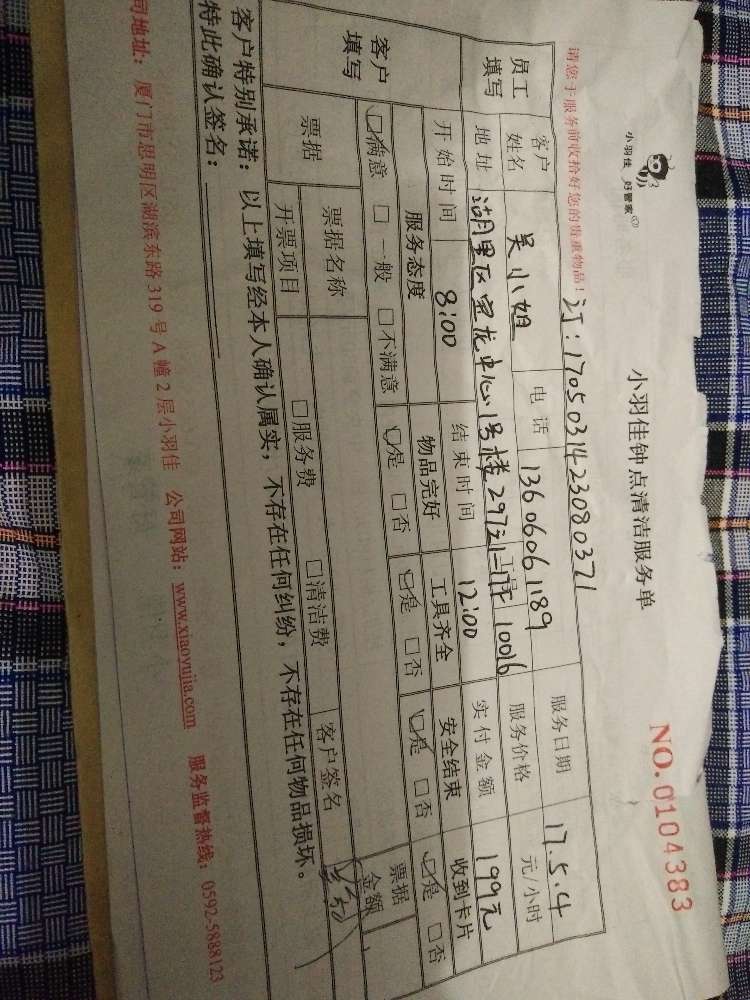 小羽佳 好管家
小羽佳钟点清洁服务单
NO.0104383
请您于服务前收拾好您的贵重物品!
订:1705031423080371
员工填写 客户姓名 吴小姐 电话 13606061189 服务日期 17.5.4
地址 湖里区宝龙中心1号楼 10016 服务价格 元/小时
开始时间 8:00 结束时间 12:00 实付金额 199元
客户填写 服务态度 物品完好 工具齐全 安全结束 收到卡片
满意 一般 不满意 是 否 是 否 是 否 是 否
票据 票据名称 票据金额
开票项目 服务费 清洁费 客户签名
客户特别承诺:以上填写经本人确认属实,不存在任何纠纷,不存在任何物品损坏。
特此确认签名:
司地址:厦门市思明区湖滨东路319号A幢2层小羽佳 公司网站:www.xiaoyujia.com 服务监督热线:0592-5888123